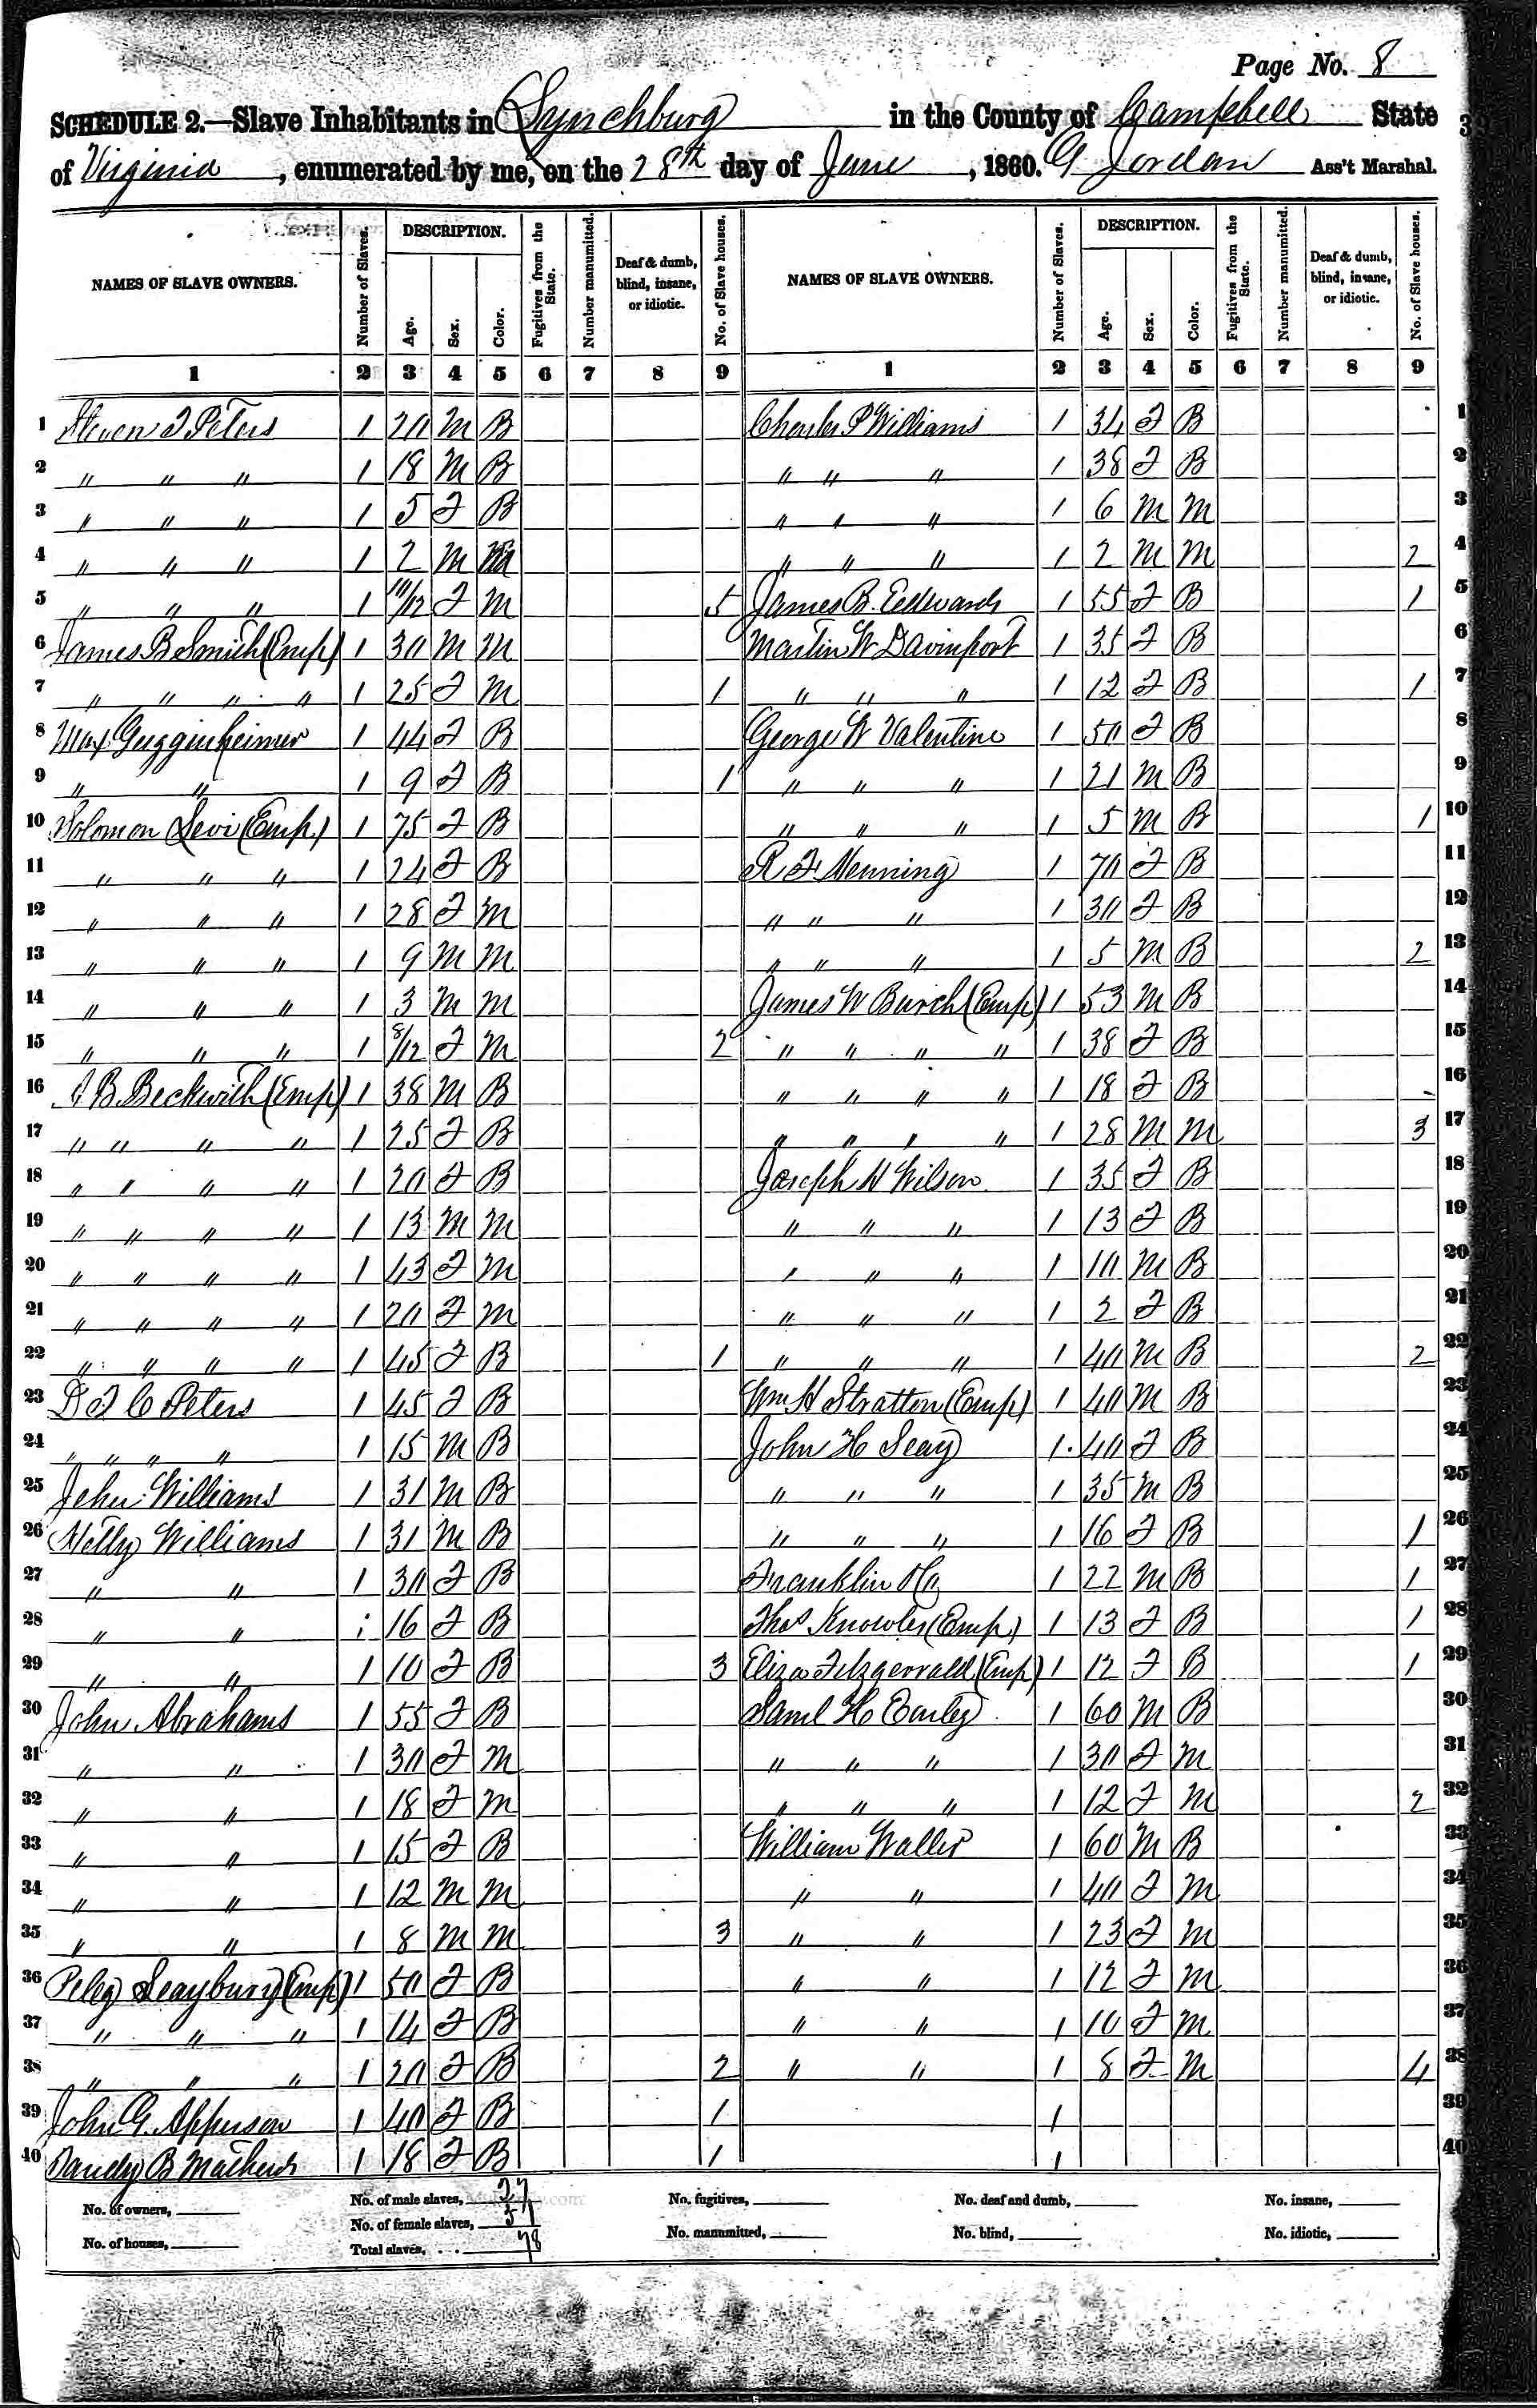 Page No. 8
SCHEDULE 2.—Slave Inhabitants in Lynchburg in the County of Campbell State
of Virginia, enumerated by me, on the 28th day of June, 1860. G Jordan Ass't Marshal.
NAMES OF SLAVE OWNERS. Number of Slaves. DESCRIPTION. Age. Sex. Color. Fugitives from the State. Number manumitted. Deaf & dumb, blind, insane, or idiotic. No. of Slave houses. NAMES OF SLAVE OWNERS. Number of Slaves. DESCRIPTION. Age. Sex. Color. Fugitives from the State. Number manumitted. Deaf & dumb, blind, insane, or idiotic. No. of Slave houses.
1 2 3 4 5 6 7 8 9 1 2 3 4 5 6 7 8 9
1 Steven F Peters 1 20 M B Charles P Williams 1 34 F B 1
2 " " " 1 18 M B " " " 1 38 F B 2
3 " " " 1 5 F B " " " 1 6 M M 3
4 " " " 1 2 M " " " 1 2 M M 2 4
5 " " " 1 11/12 F M 5 James B. Edwards 1 55 F B 1 5
6 James B Smith (Emp) 1 30 M M Martin W Davinport 1 35 F B 6
7 " " " " 1 25 F M 1 " " " 1 12 F B 1 7
8 Max Guggenheimer 1 44 F B George W Valentine 1 50 F B 8
9 " " 1 9 F B 1 " " " 1 21 M B 9
10 Solomon Levi (Emp) 1 75 F B " " " 1 5 M B 1 10
11 " " " 1 24 F B R F Henning 1 70 F B 11
12 " " " 1 28 F M " " " 1 30 F B 12
13 " " " 1 9 M M " " " 1 5 M B 2 13
14 " " " 1 3 M M James W Burch (Emp) 1 53 M B 14
15 " " " 1 8/12 F M 2 " " " " 1 38 F B 15
16 B. Beckwith (Emp) 1 38 M B " " " " 1 18 F B 16
17 " " " " 1 25 F B " " " " 1 28 M M 3 17
18 " " " " 1 20 F B Joseph H Wilson 1 35 F B 18
19 " " " " 1 13 M M " " " 1 13 F B 19
20 " " " " 1 43 F M " " " 1 10 M B 20
21 " " " " 1 20 F M " " " 1 2 F B 21
22 " " " " 1 45 F B 1 " " " 1 40 M B 2 22
23 D F C Peters 1 45 F B Wm H Stratton (Emp) 1 40 M B 23
24 " " " " 1 15 M B John H Seay 1 40 F B 24
25 John Williams 1 31 M B " " " 1 35 M B 25
26 Williams 1 31 M B " " " 1 16 F B 1 26
27 " " 1 30 F B Franklin 1 22 M B 1 27
28 " " 1 16 F B Thos Knowles (Emp) 1 13 F B 1 28
29 " " 1 10 F B 3 Eliza Fitzgerrald (Emp) 1 12 F B 1 29
30 John Abrahams 1 55 F B Saml H Early 1 60 M B 30
31 " " 1 30 F M " " " 1 30 F M 31
32 " " 1 18 F M " " " 1 12 F M 2 32
33 " " 1 15 F B William Waller 1 60 M B 33
34 " " 1 12 M M " " 1 40 F M 34
35 " " 1 8 M M 3 " " 1 23 F M 35
36 Peleg Seaybury (Emp) 1 50 F B " " 1 12 F M 36
37 " " " 1 14 F B " " 1 10 F M 37
38 " " " 1 20 F B 2 " " 1 8 F M 4 38
39 John G. Apperson 1 40 F B 1 1 39
40 B Mathews 1 18 F B 1 1 40
No. of owners, No. of male slaves, 27 No. fugitives, No. deaf and dumb, No. insane,
No. of houses, No. of female slaves, 51 No. manumitted, No. blind, No. idiotic,
Total slaves, 78